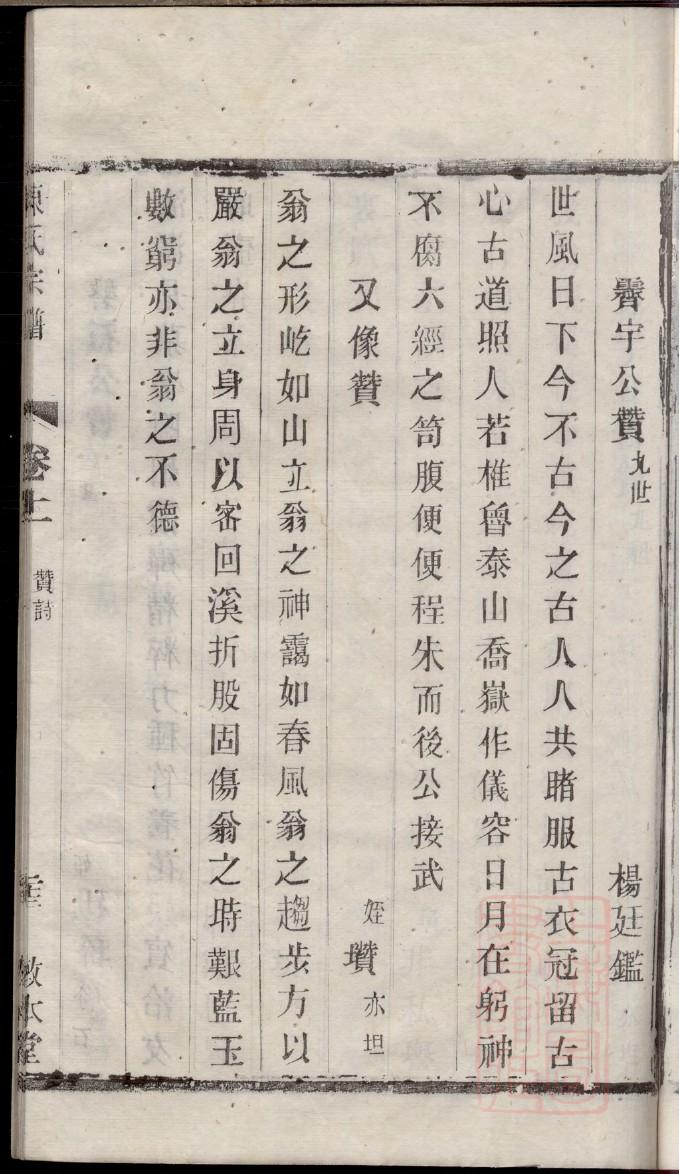 霽宇公贊 九世 楊廷鑑
世風日下今不古今之古人人共睹服古衣冠留古
心古道照人若椎魯泰山喬嶽作儀容日月在躬神
不腐六經之笥腹便便程朱而後公接武
又像贊 姪 瓚 亦坦
翁之形屹如山立翁之神靄如春風翁之趨步方以
嚴翁之立身周以密回溪折股固傷翁之時艱藍玉
數窮亦非翁之不德
陳氏宗譜 卷十一 贊詩 敦本堂